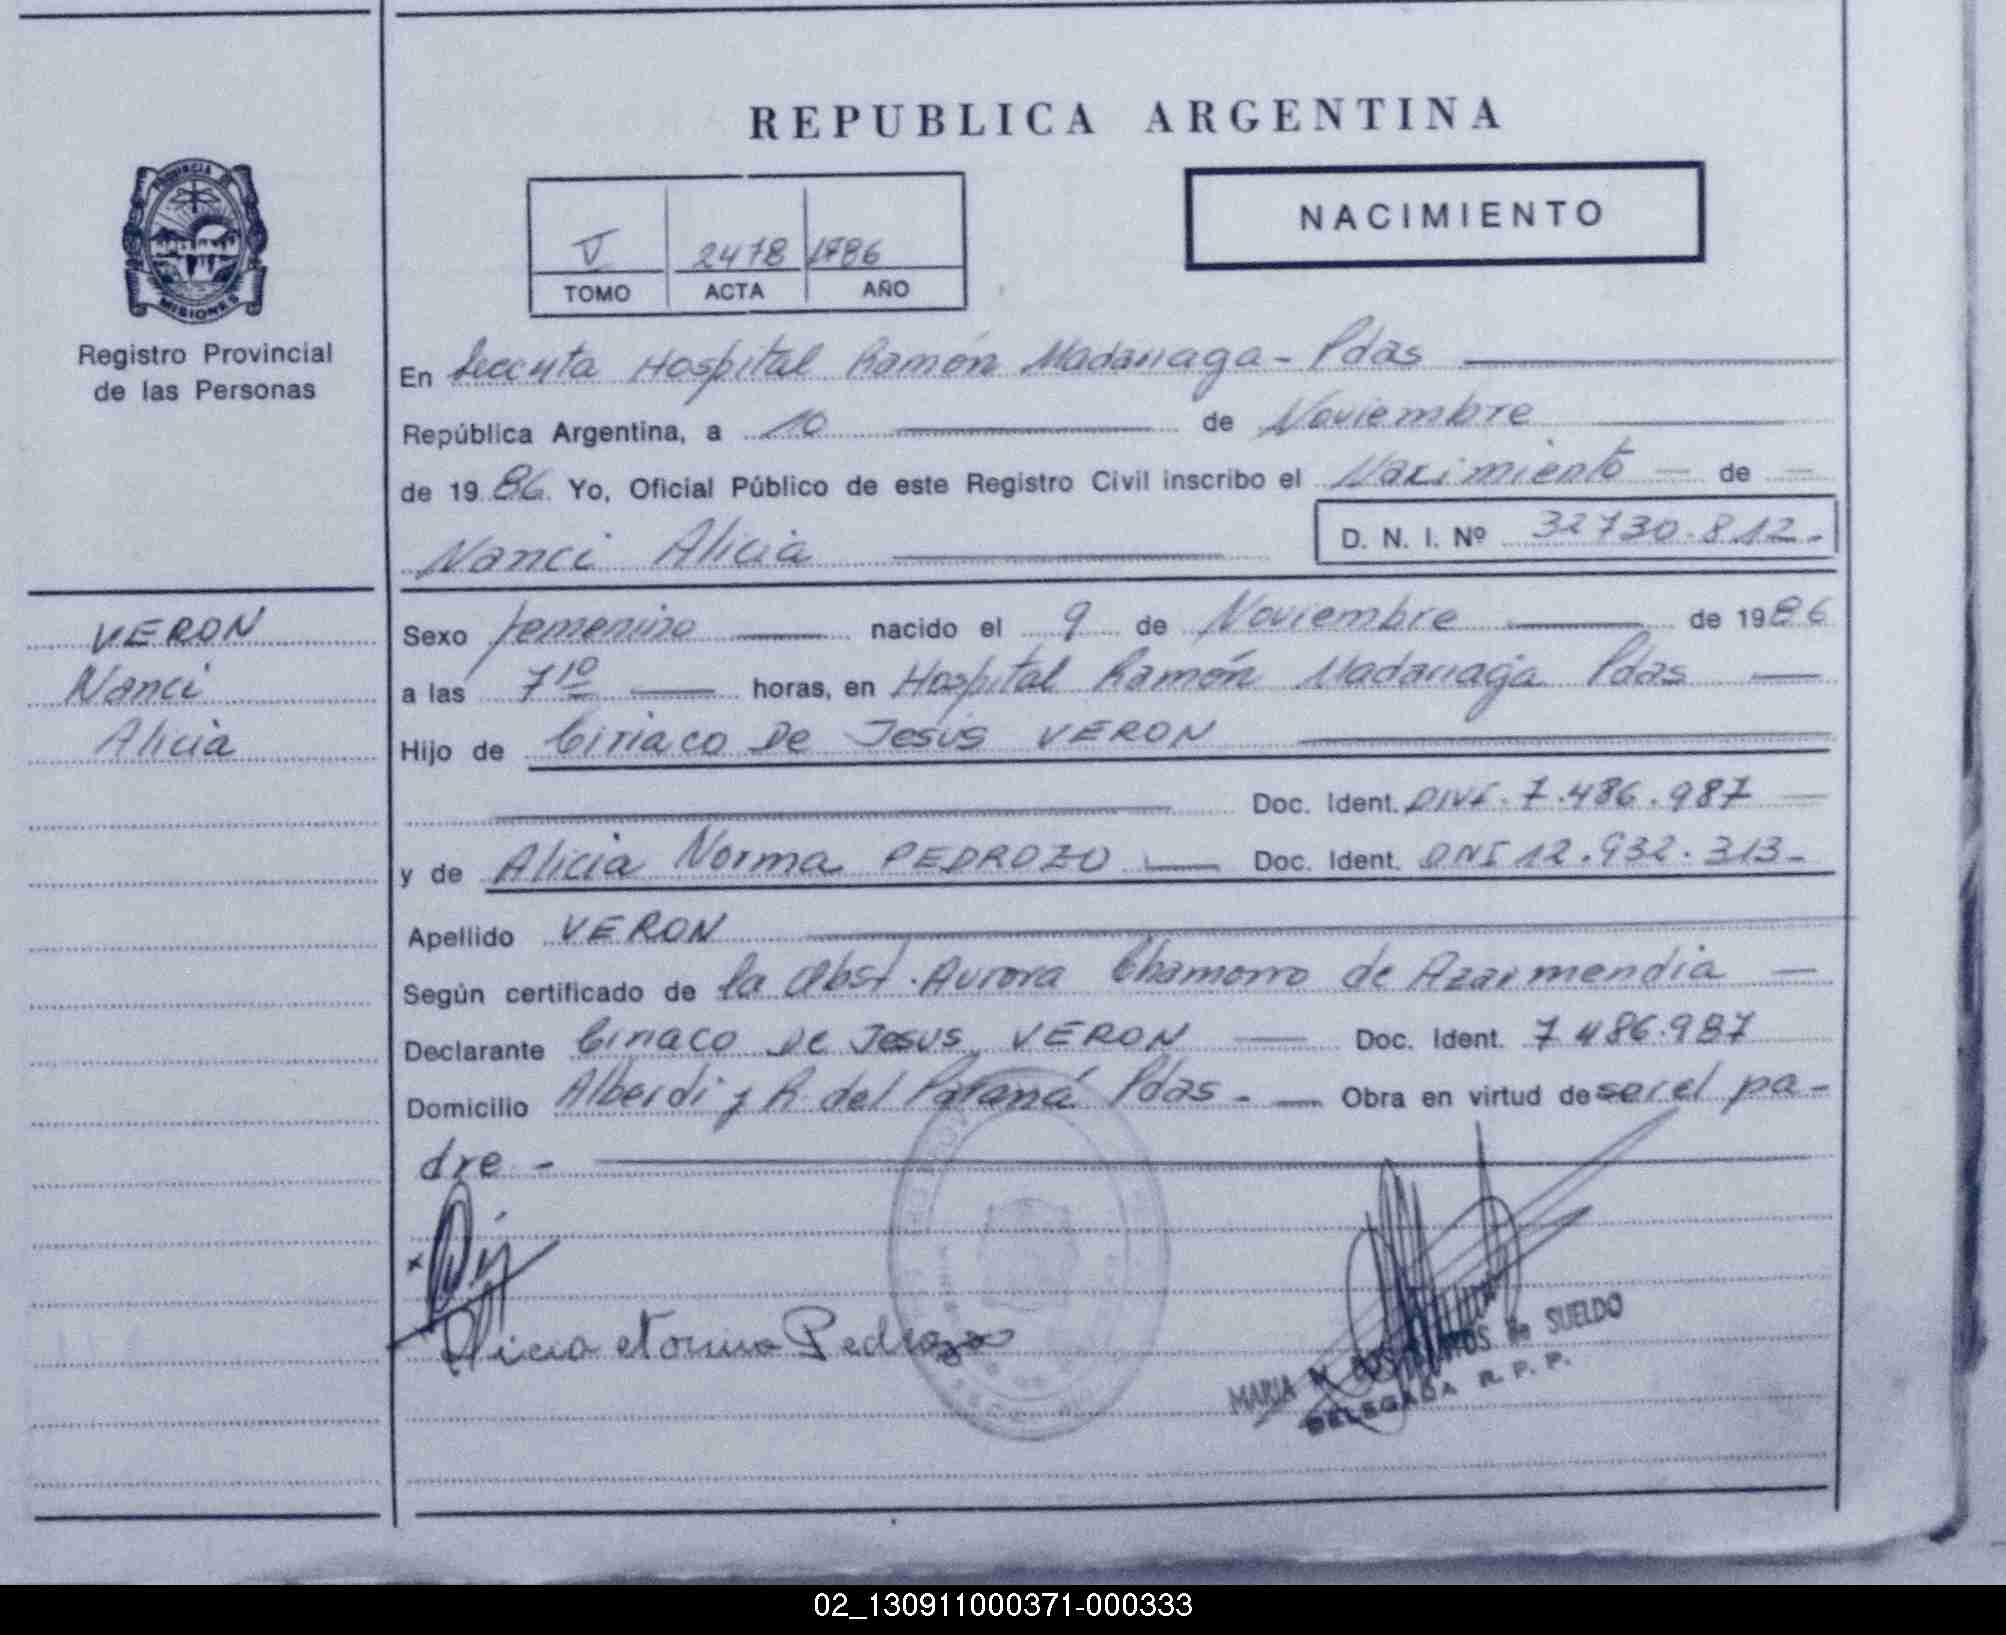 REPUBLICA ARGENTINA
PROVINCIA DE
MISIONES
Registro Provincial
de las Personas
NACIMIENTO
V 2478 1986
TOMO ACTA AÑO
En Hospital Ramón Madariaga - Pdas
República Argentina, a 10 de Noviembre
de 1986 Yo, Oficial Público de este Registro Civil inscribo el Nacimiento de
Nanci Alicia D. N. I. Nº 32730.812.-
VERON
Nanci
Alicia
Sexo femenino nacido el 9 de Noviembre de 1986
a las 7 10 horas, en Hospital Ramón Madariaga Pdas
Hijo de Ciriaco De Jesús VERON
Doc. Ident. DNI. 7.486.987
y de Alicia Norma PEDROZO Doc. Ident. DNI 12.932.313-
Apellido VERON
Según certificado de la Obst. Aurora Chamorro de Azarmendia
Declarante Ciriaco De Jesus VERON Doc. Ident. 7486.987
Domicilio Alberdi y R. del Paraná Pdas - Obra en virtud de ser el pa-
dre -
Alicia Norma Pedrozo
MARIA de SUELDO
DELEGADA R. P. P.
02_130911000371-000333